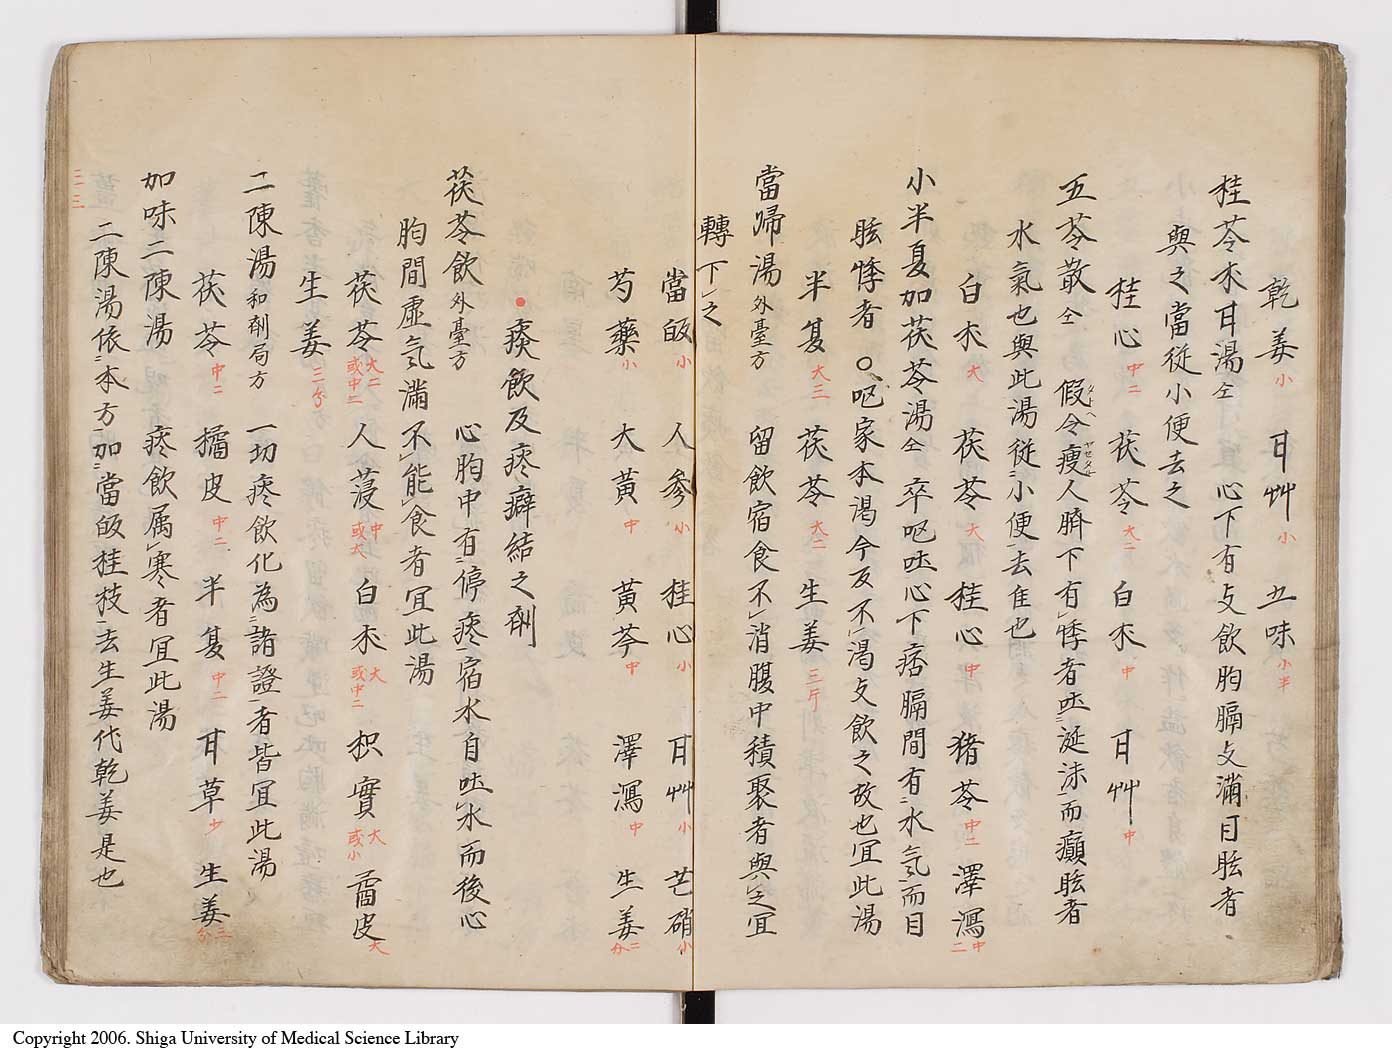 乾姜小 甘艸小 五味小半
桂苓朮甘湯仝 心下有攴飲胸膈攴滿目眩者
與之當従小便去之
桂心中二 茯苓大二 白朮中 甘艸中
五苓散仝 假令瘦人臍下有悸者吐涎沫而癲眩者
タトヘ ヤセタル
水氣也與此湯従小便去隹也
白朮大 茯苓大 桂心中 猪苓中二 澤瀉中二
小半夏加茯苓湯仝 卒呕吐心下痞膈間有水氣而目
眩悸者 ○呕家本渇今反不渇攴飲之故也冝此湯
半夏大三 茯苓大二 生姜三斤
當歸湯外臺方 留飲宿食不消腹中積聚者與之冝
轉下之
當皈小 人参小 桂心小 甘艸小 芒硝小
芍藥小 大黄中 黄芩中 澤瀉中 生姜二分
痰飲及痃癖結之劑
茯苓飲外臺方 心胸中有停痰宿水自吐水而後心
胸間虚氣滿不能食者冝此湯
茯苓大二或中二 人葠中或大 白朮大或中二 枳實大或小 橘皮大
生姜三分
二陳湯和劑局方 一切痰飲化為諸證者皆冝此湯
茯苓中二 橘皮中二 半夏中二 甘草少 生姜三分
加味二陳湯 痰飲属寒者冝此湯
二陳湯依本方加當皈桂枝去生姜代乾姜是也
Copyright 2006. Shiga University of Medical Science Library